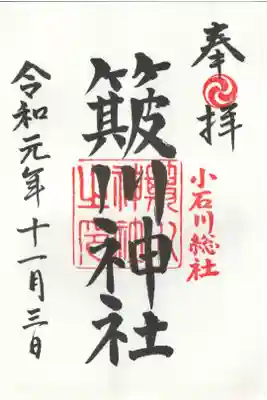 奉拝
小石川総社
簸川神社
令和元年十一月三日